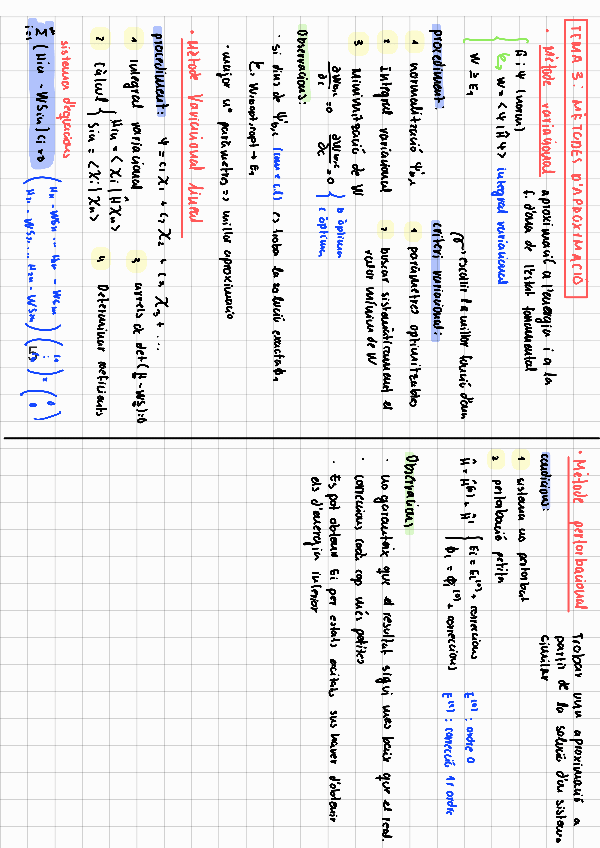 TEMA 3: MÈTODES D'APROXIMACIÓ
· Mètode variacional aproximació a l'energia i a la
f. d'ona de l'estat fonamental
Ĥ; Ψ (norm)
W = <Ψ|Ĥ Ψ> integral variacional
W ≥ E₁
escollir la millor funció d'ona
procediment:
1 normalització Ψb,c
2 Integral variacional
3 Minimització de W
∂Wb,c/∂b = 0 ∂Wb,c/∂c = 0 } b òptim c òptim
criteri variacional:
1 paràmetres optimitzables
2 buscar sistemàticament el
valor mínim de W
Observacions:
· si dins de Ψb,c es troba la solució exacta ϕ₁
Wbopt,copt → E₁
· major nº paràmetres => millor aproximació
· Mètode Variacional lineal
Ψ = c₁ χ₁ + c₂ χ₂ + c₃ χ₃ + ...
procediment:
1 integral variacional
2 Càlcul { Him = <χi|Ĥχm>
Sim = <χi|χm>
3 arrels de det(H - WS)=0
4 Determinar coeficients
sistema d'equacions
Σ (Him - WSim) ci = 0
· Mètode pertorbacional Trobar una aproximació a
partir de la solució d'un sistema
similar
condicions:
1 sistema no pertorbat
2 pertorbació petita
Ĥ = Ĥ⁽⁰⁾ + Ĥ' { Ei = Ei⁽⁰⁾ + correccions
ϕi = ϕi⁽⁰⁾ + correccions
E⁽⁰⁾: ordre 0
E⁽¹⁾: correcció 1r ordre
Observacions
· no garanteix que el resultat sigui més baix que el real.
· correccions cada cop més petites
· Es pot obtenir Ei per estats excitats sens haver d'obtenir
els d'energia inferior